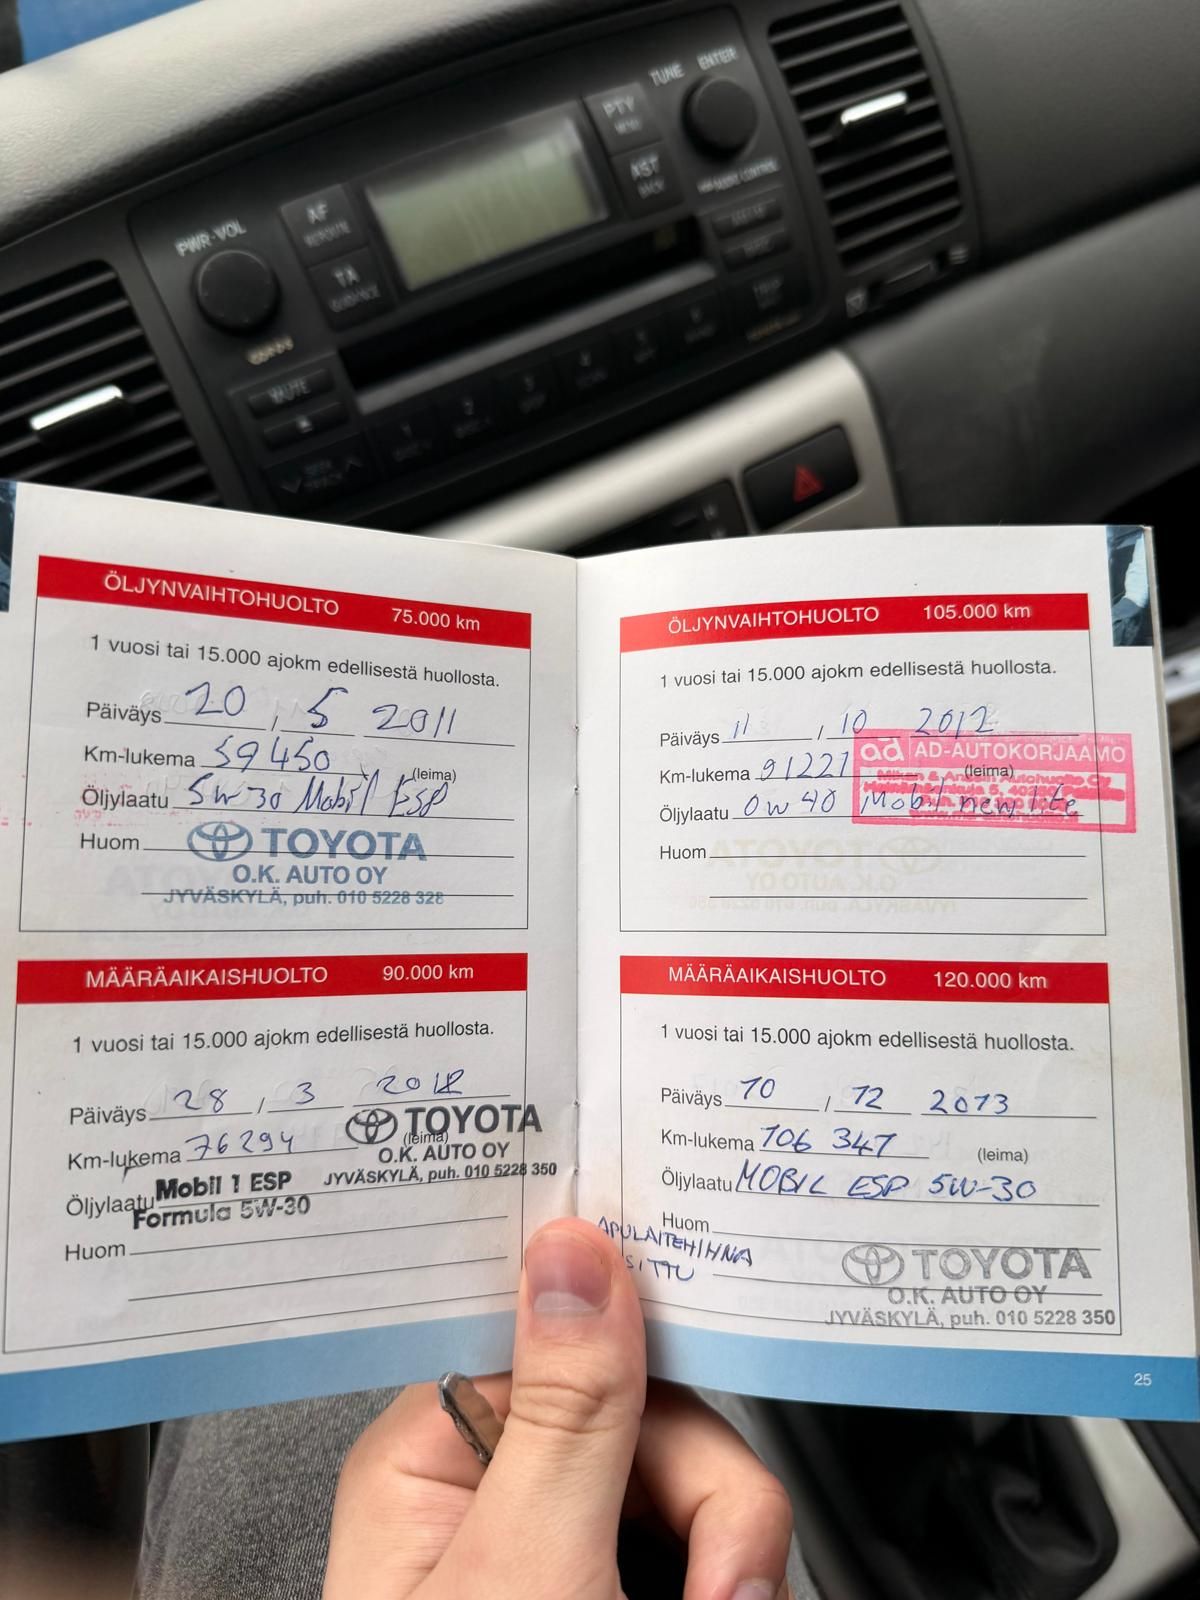 TUNE ENTER
PTY
MENU
AST
BACK
PWR·VOL
AF
TA
GUIDANCE
MUTE
ÖLJYNVAIHTOHUOLTO 75.000 km
1 vuosi tai 15.000 ajokm edellisestä huollosta.
Päiväys 20 / 5 2011
Km-lukema 59 450
(leima)
Öljylaatu 5w30 Mobil ESP
Huom
TOYOTA
O.K. AUTO OY
JYVÄSKYLÄ, puh. 010 5228 328
MÄÄRÄAIKAISHUOLTO 90.000 km
1 vuosi tai 15.000 ajokm edellisestä huollosta.
Päiväys 28 / 3 2012
Km-lukema 76294
(leima)
TOYOTA
O.K. AUTO OY
JYVÄSKYLÄ, puh. 010 5228 350
Öljylaatu Mobil 1 ESP
Formula 5W-30
Huom
ÖLJYNVAIHTOHUOLTO 105.000 km
1 vuosi tai 15.000 ajokm edellisestä huollosta.
Päiväys 11 / 10 2012
ad AD-AUTOKORJAAMO
Km-lukema 91221
(leima)
Öljylaatu 0w40 Mobil new life
Huom
MÄÄRÄAIKAISHUOLTO 120.000 km
1 vuosi tai 15.000 ajokm edellisestä huollosta.
Päiväys 10 / 12 2013
Km-lukema 106 347
(leima)
Öljylaatu MOBIL ESP 5W-30
Huom
APULAITEHIHNA
TOYOTA
O.K. AUTO OY
JYVÄSKYLÄ, puh. 010 5228 350
25